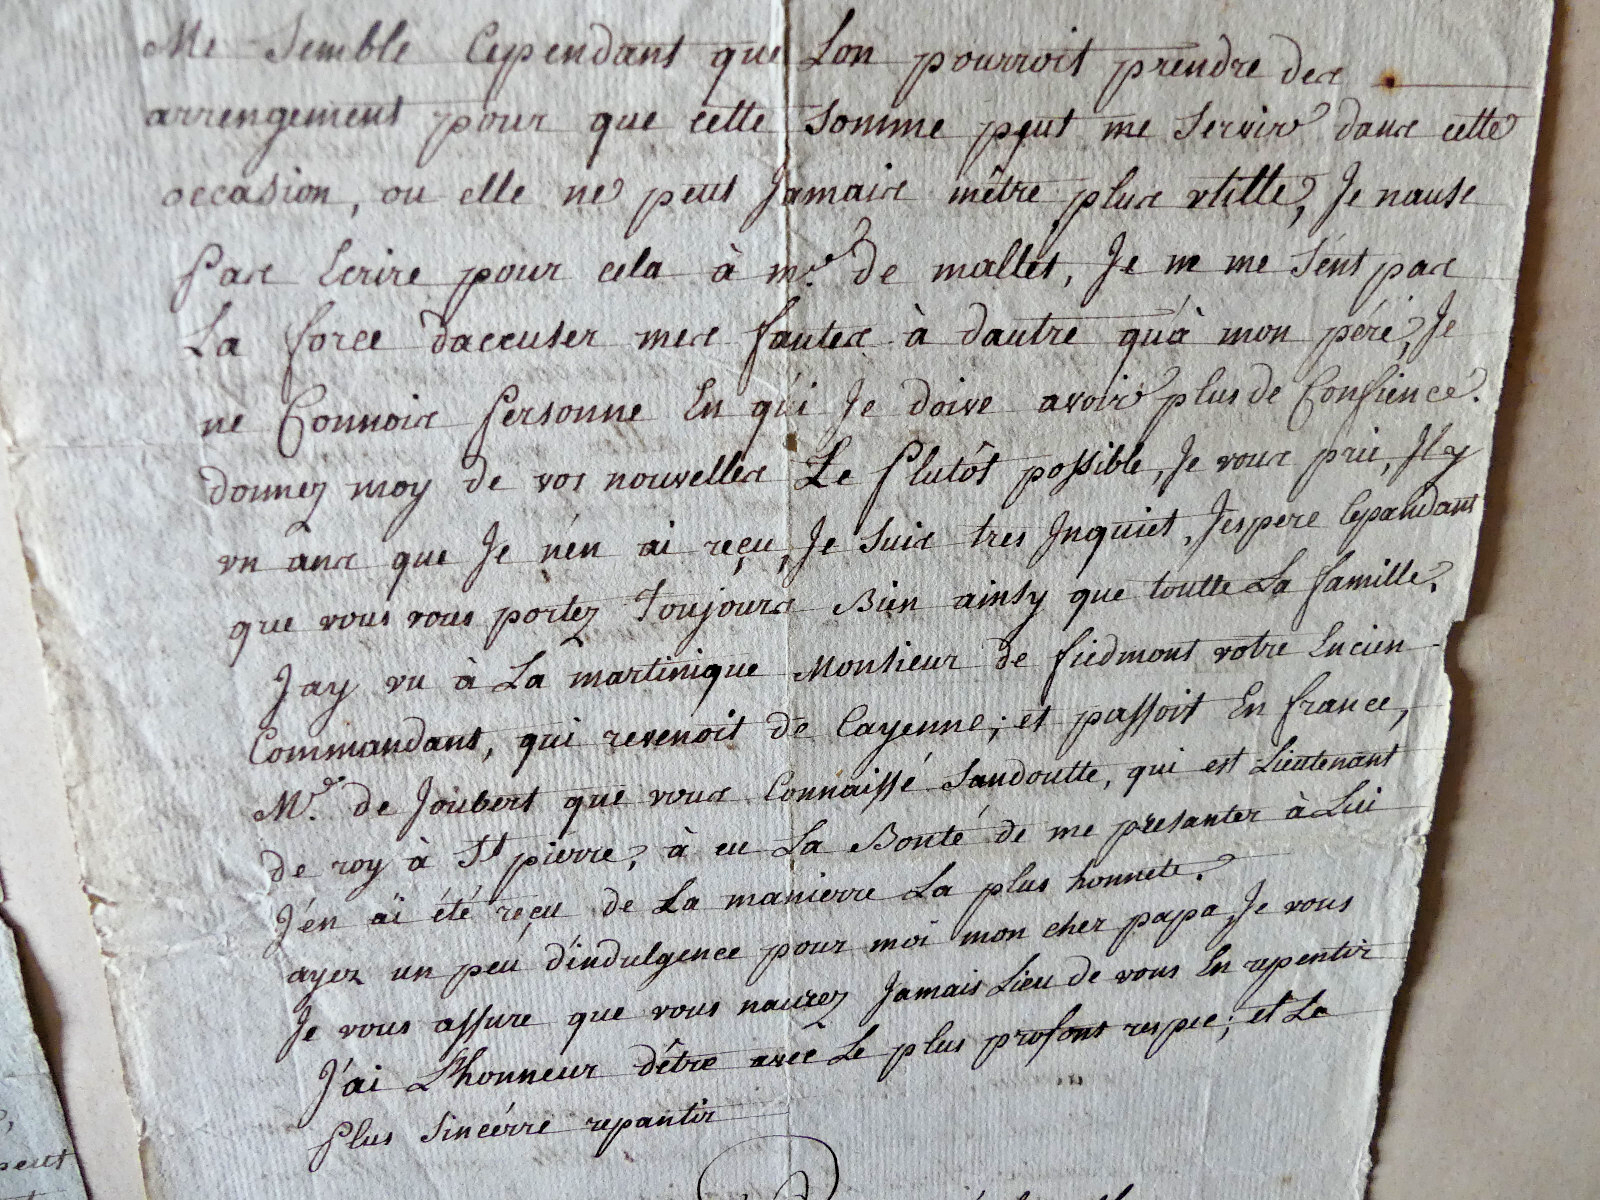 Me Semble Cependant que Lon pourroit prendre des
arrengement pour que cette Somme peut me Servir dans cette
occasion, ou elle ne peut Jamais mêtre plus utille, Je nause
Pas Ecrire pour cela à mr. de malles, Je ne me Sént pas
La force daccuser mes fautes à dautre qu'à mon péré, Je
ne Connois Personne En qui Je doive avoir plus de Confience.
donnez moy de vos nouvelles Le Plutôt possible, Je vous prie, Il y
un ans que Je n'én ai reçu, Je Suis tres Inquiet, Jespere Cepandant
que vous vous portez Toujours Bien ainsy que toutte La famille.
Jay vu à La martinique Monsieur de fiedmont votre Encien
Commandant, qui revenoit de Cayenne; et passoit En france,
Mr. de Joubert que vous Connaissé Sandoutte, qui est Lieutenant
de roy à St pierre, à eu La Bonté de me presanter à Lui
J'én ai été reçu de La manierre La plus honnete.
ayez un peu d'indulgence pour moi mon cher papa, Je vous
Je vous assure que vous naurez Jamais Lieu de vous En repentir
J'ai L'honneur d'être avec Le plus profont respec; et Le
Plus Sincérre repantir
peut